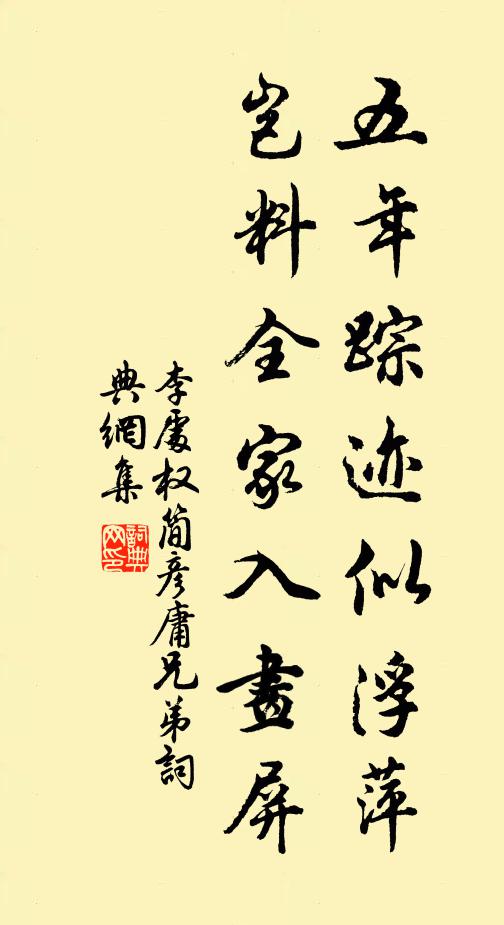 五年踪迹似浮萍
岂料全家入畫屏
李處权简彦庸兄弟詞
典網集
詞典
网印